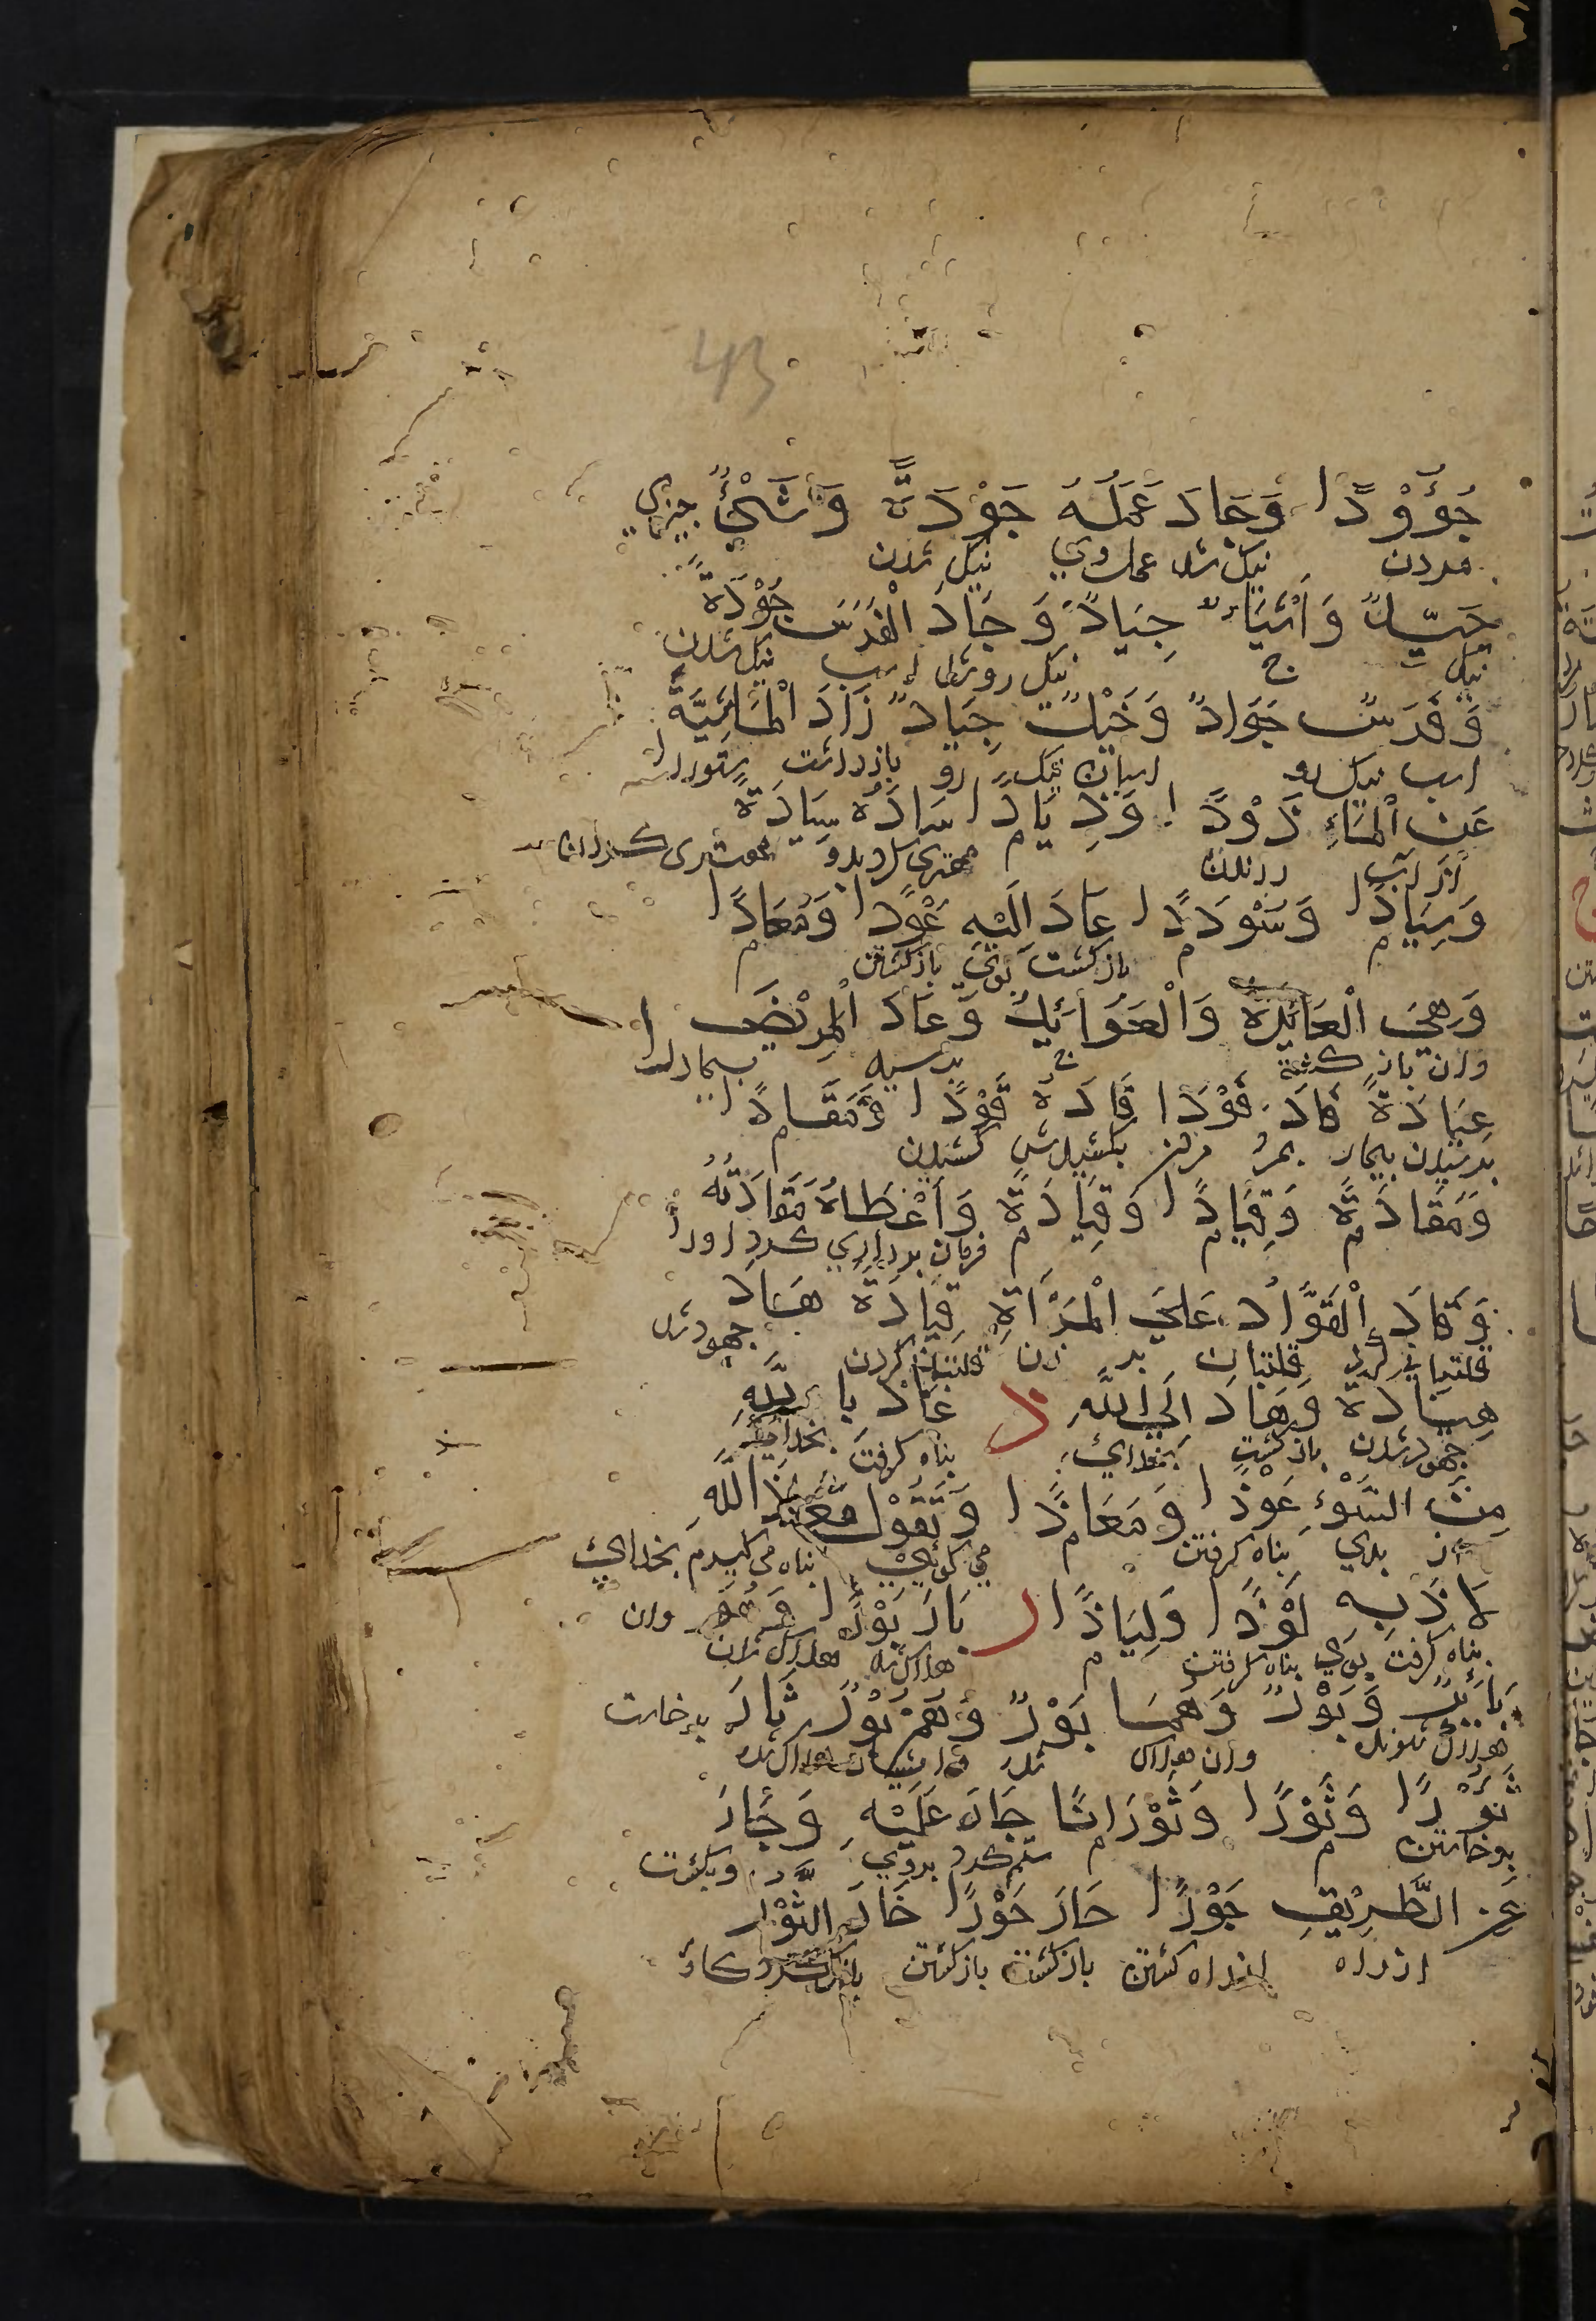 43
جُؤُوْدًا وَجَادَ عَمَلُهُ جَوْدَةً وَشَيْءٌ چیزی
مردن نیک شد عمل وی نیک شدن
جَيِّدٌ وَاَشْيَاءُ جِيَادٌ وَجَادَ الْفَرَسُ جُوْدَةً
نیک ج نیک رو شد اسب نیک شدن
وَفَرَسٌ جَوَادٌ وَخَيْلٌ جِيَادٌ ذَادَ الْمَاشِيَةَ
اسب نیک رو اسبان نیک رو بازداشت ستور را
عَنِ الْمَاءِ ذَوْدًا وَذِيَادًا سَادَهُ سِيَادَةً
از آب م مهتری کرد برو
وَسِيَادًا وَسُوْدَدًا عَادَ اِلَيْهِ عَوْدًا وَمَعَادًا
م م باز کشت بوی باز کشتن م
وَهِيَ الْعَائِدَةُ وَالْعَوَائِدُ وَعَادَ الْمَرِيْضَ
وان باز کشته ج پرسید بیمار را
عِيَادَةً فَادَ فَوْدًا قَادَهُ قَوْدًا وَمَقَادًا
پرسیدن بیمار بمرد مردن بکشیدش کشیدن م
وَمَقَادَةً وَقِيَادًا وَقِيَادَةً وَاَعْطَاهُ مَقَادَتَهُ
م م م فرمان برداری کرد اورا
وَقَادَ الْقَوَّادُ عَلَى الْمَرْاَةِ قِيَادَةً هَادَ
قلتبانی کرد قلتبان بر زن قلتبانی کردن جهود شد
هِيَادَةً وَهَادَ اِلَى اللّٰهِ ذ عَاذَ بِاللّٰهِ
جهود شدن باز کشت بخدای پناه کرفت بخدای
مِنَ السُّوْءِ عَوْذًا وَمَعَاذًا وَتَقُوْلُ مَعَاذَ اللّٰهِ
از بدی پناه کرفتن م می کوئی پناه می کیرم بخدای
لَاذَ بِهِ لَوْذًا وَلِيَاذًا ر بَارَ بَوْرًا وَهُوَ وان
پناه کرفت بوی پناه کرفتن م هلاک شد هلاک شدن
بَائِرٌ وَبُوْرٌ وَهُمَا بُوْرٌ وَهُمْ بُوْرٌ ثَارَ برخاست
ثَوْرًا وَثُؤُرًا وَثَوَرَانًا جَارَ عَلَيْهِ وَجَارَ
برخاستن م م ستم کرد بروی وبکشت
عَنِ الطَّرِيْقِ جَوْرًا حَارَ حَوْرًا خَارَ الثَّوْرُ
از راه از راه کشتن باز کشت باز کشتن بانک کرد کاو